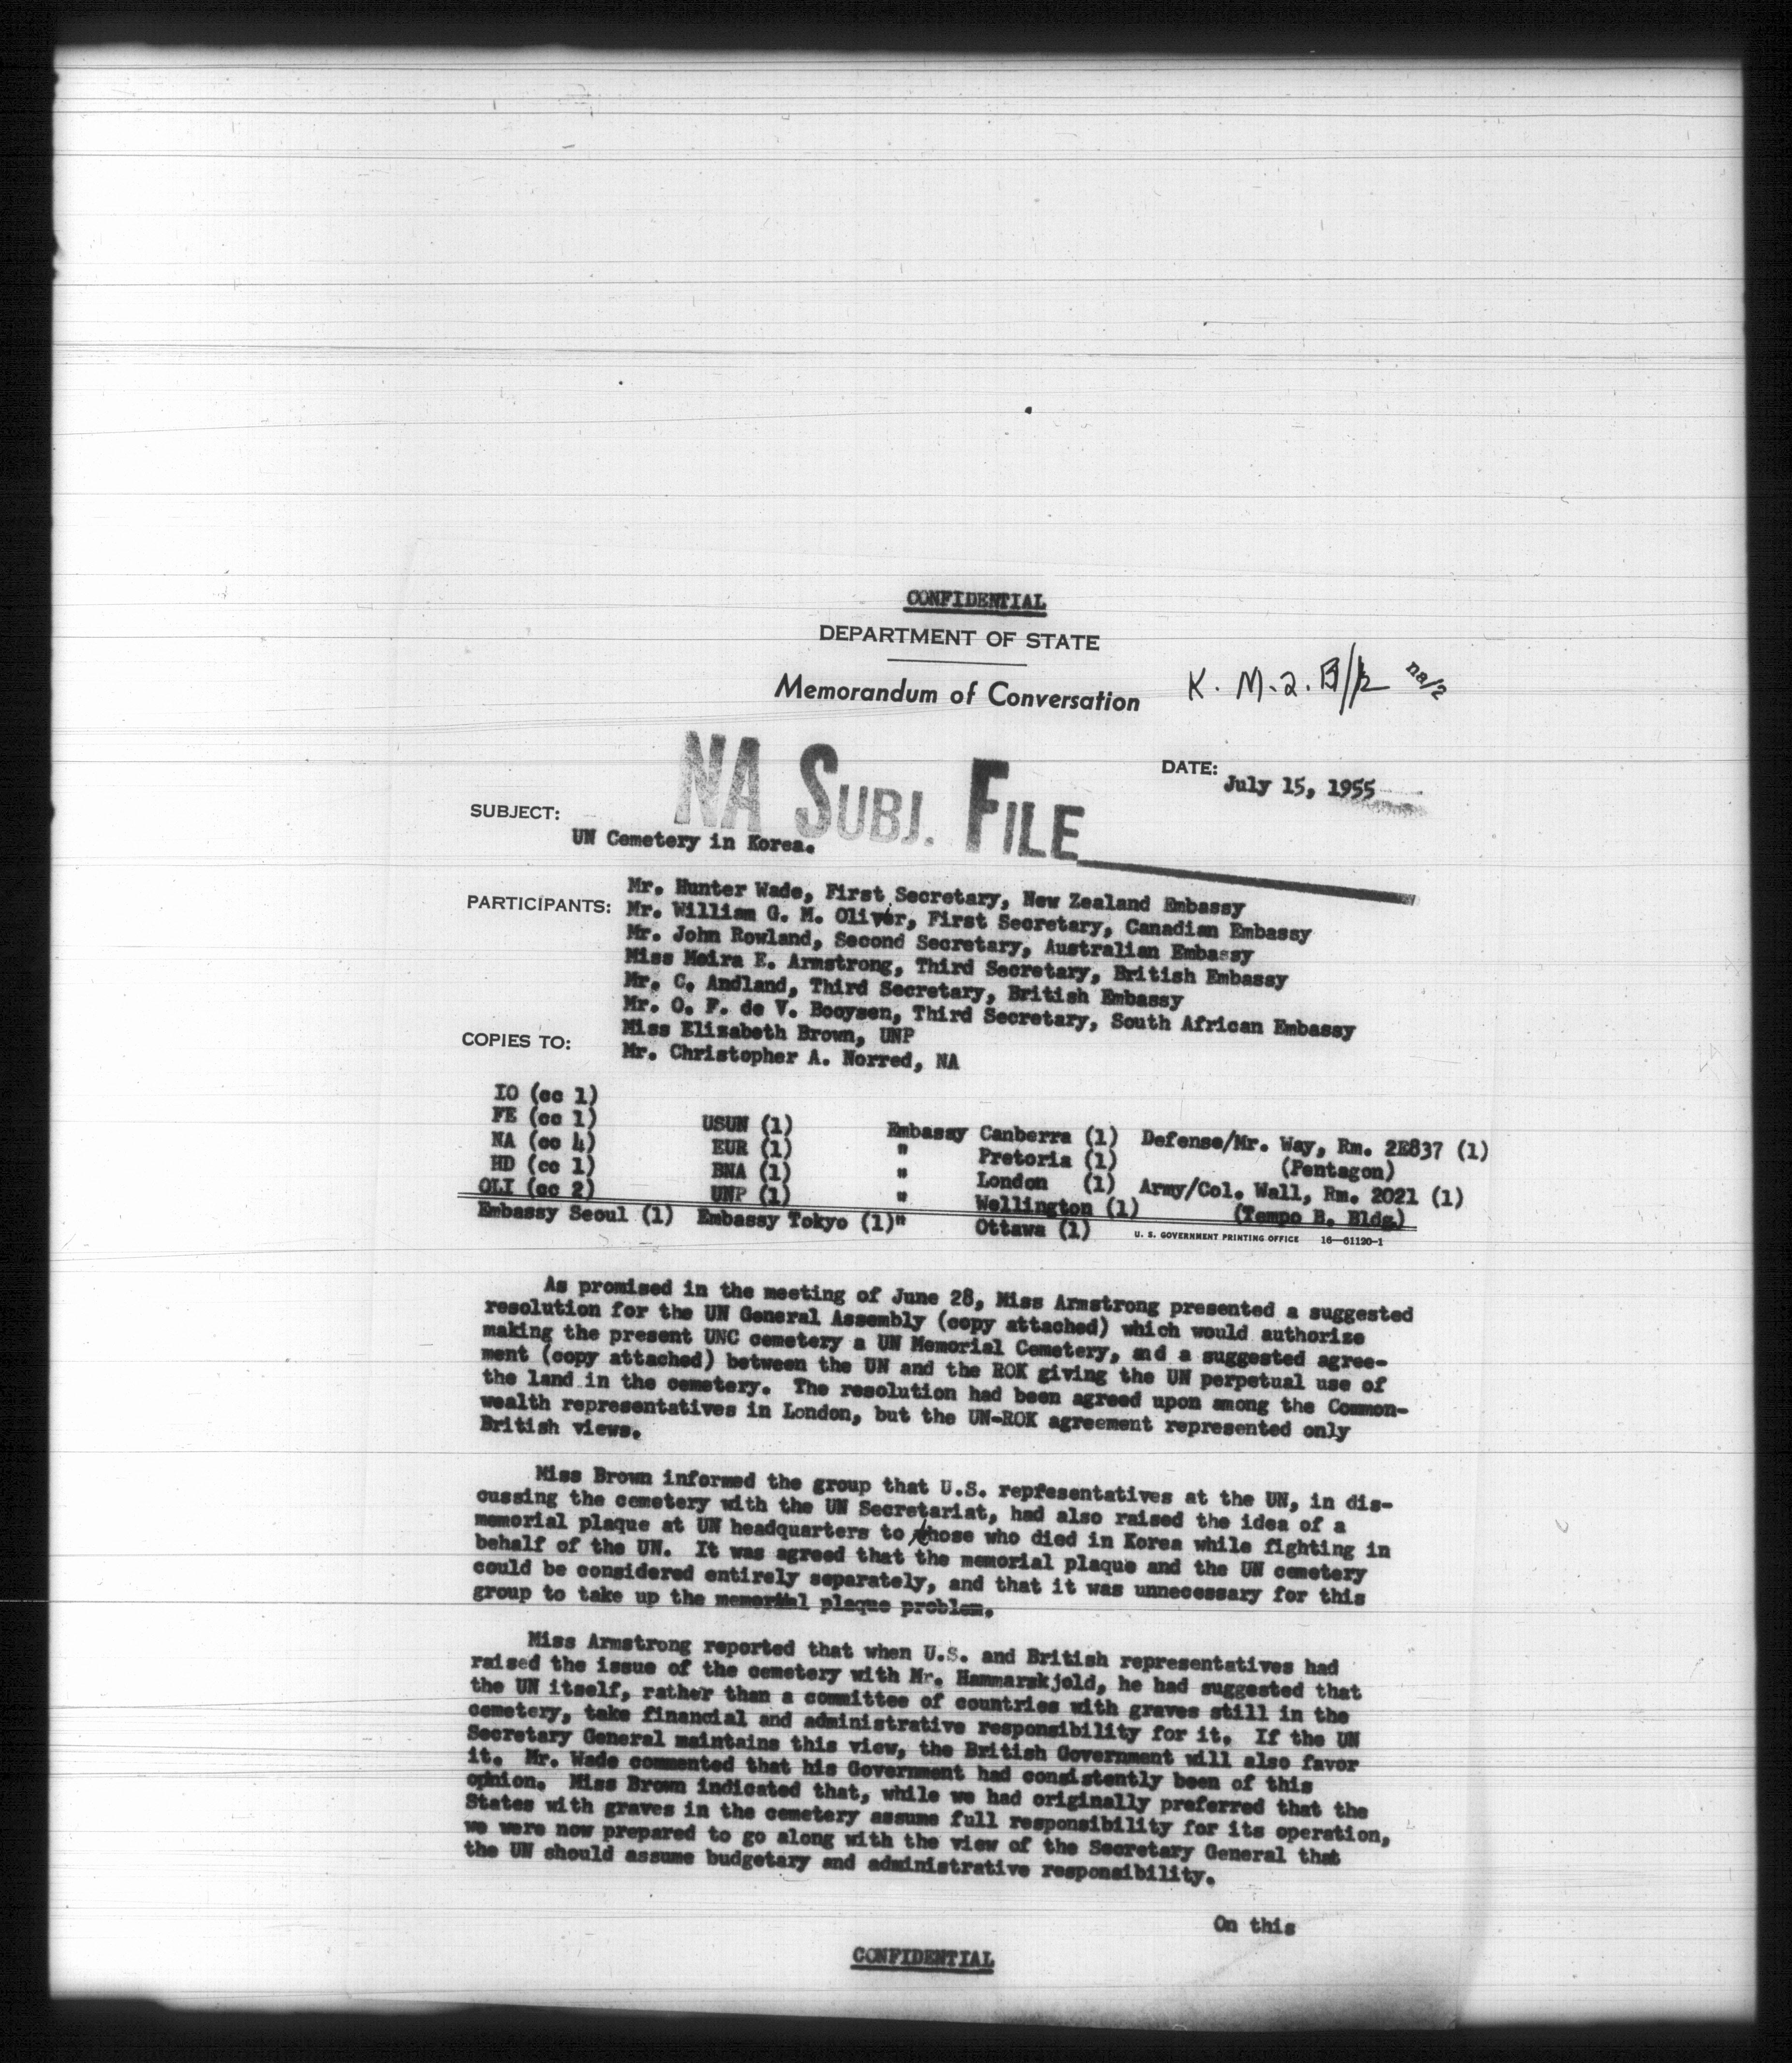 CONFIDENTIAL
DEPARTMENT OF STATE
Memorandum of Conversation
K. M.2. B/2 na/2
NA SUBJ. FILE
DATE: July 15, 1955
SUBJECT:
UN Cemetery in Korea.
PARTICIPANTS:
Mr. Hunter Wade, First Secretary, New Zealand Embassy
Mr. William G. M. Oliver, First Secretary, Canadian Embassy
Mr. John Rowland, Second Secretary, Australian Embassy
Miss Moira E. Armstrong, Third Secretary, British Embassy
Mr. C. Andland, Third Secretary, British Embassy
Mr. O. F. de V. Booysen, Third Secretary, South African Embassy
Miss Elizabeth Brown, UNP
Mr. Christopher A. Norred, NA
COPIES TO:
IO (cc 1)
FE (cc 1) USUN (1) Embassy Canberra (1) Defense/Mr. Way, Rm. 2E837 (1)
NA (cc 4) EUR (1) " Pretoria (1) (Pentagon)
HD (cc 1) BNA (1) " London (1) Army/Col. Wall, Rm. 2021 (1)
OLI (cc 2) UNP (1) " Wellington (1) (Tempo B. Bldg.)
Embassy Seoul (1) Embassy Tokyo (1) " Ottawa (1)
U. S. GOVERNMENT PRINTING OFFICE 16—61120-1
As promised in the meeting of June 28, Miss Armstrong presented a suggested
resolution for the UN General Assembly (copy attached) which would authorize
making the present UNC cemetery a UN Memorial Cemetery, and a suggested agree-
ment (copy attached) between the UN and the ROK giving the UN perpetual use of
the land in the cemetery. The resolution had been agreed upon among the Common-
wealth representatives in London, but the UN-ROK agreement represented only
British views.
Miss Brown informed the group that U.S. representatives at the UN, in dis-
cussing the cemetery with the UN Secretariat, had also raised the idea of a
memorial plaque at UN headquarters to those who died in Korea while fighting in
behalf of the UN. It was agreed that the memorial plaque and the UN cemetery
could be considered entirely separately, and that it was unnecessary for this
group to take up the memorial plaque problem.
Miss Armstrong reported that when U.S. and British representatives had
raised the issue of the cemetery with Mr. Hammarskjold, he had suggested that
the UN itself, rather than a committee of countries with graves still in the
cemetery, take financial and administrative responsibility for it. If the UN
Secretary General maintains this view, the British Government will also favor
it. Mr. Wade commented that his Government had consistently been of this
opinion. Miss Brown indicated that, while we had originally preferred that the
States with graves in the cemetery assume full responsibility for its operation,
we were now prepared to go along with the view of the Secretary General that
the UN should assume budgetary and administrative responsibility.
On this
CONFIDENTIAL